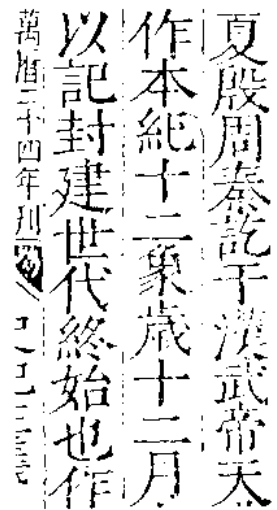 夏殷周秦訖于漢武帝天
作本紀十二象歲十二月
以記封建世代終始也作
萬曆二十四年刊